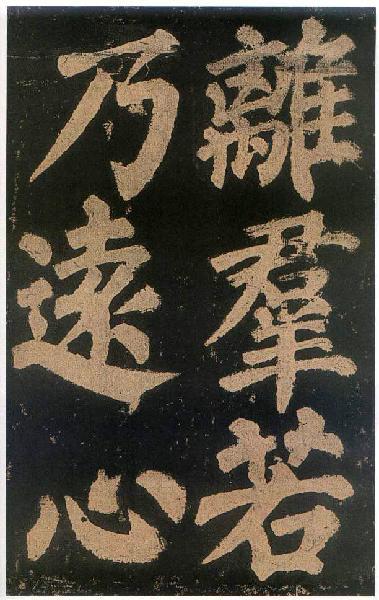 離羣若
乃遠心